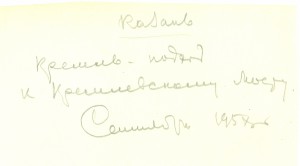 Казань
Кремль - подход
к Кремлевскому мосту.
Сентябрь 1958г